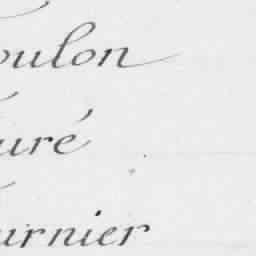 oulon
uré
urnier